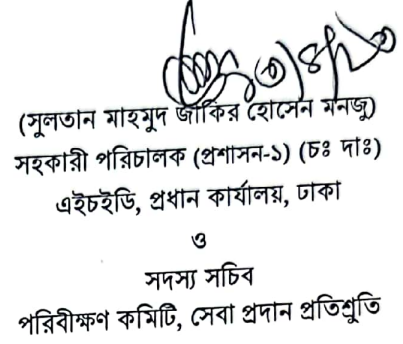 (সুলতান মাহমুদ জাকির হোসেন মনজু)
সহকারী পরিচালক (প্রশাসন-১) (চঃ দাঃ)
এইচইডি, প্রধান কার্যালয়, ঢাকা
ও
সদস্য সচিব
পরিবীক্ষণ কমিটি, সেবা প্রদান প্রতিশ্রুতি